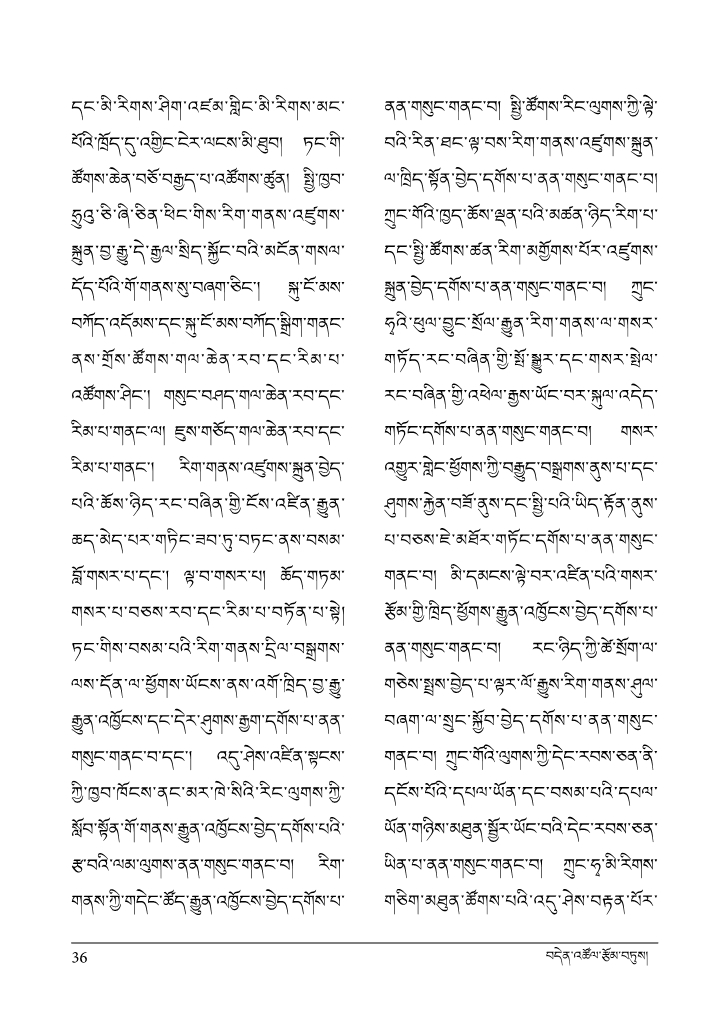 དང་མི་རིགས་ཤིག་འཛམ་གླིང་མི་རིགས་མང་
པོའི་ཁྲོད་དུ་འགྱིང་ངེར་ལངས་མི་ཐུབ། ཏང་གི་
ཚོགས་ཆེན་བཅོ་བརྒྱད་པ་འཚོགས་ཚུན། སྤྱི་ཁྱབ་
ཧྲུའུ་ཅི་ཞི་ཅིན་ཕིང་གིས་རིག་གནས་འཛུགས་
སྐྲུན་བྱ་རྒྱུ་དེ་རྒྱལ་སྲིད་སྐྱོང་བའི་མངོན་གསལ་
དོད་པོའི་གོ་གནས་སུ་བཞག་ཅིང་། སྐུ་ངོ་མས་
བཀོད་འདོམས་དང་སྐུ་ངོ་མས་བཀོད་སྒྲིག་གནང་
ནས་གྲོས་ཚོགས་གལ་ཆེན་རབ་དང་རིམ་པ་
འཚོགས་ཤིང་། གསུང་བཤད་གལ་ཆེན་རབ་དང་
རིམ་པ་གནང་ལ། ཇུས་གཅོད་གལ་ཆེན་རབ་དང་
རིམ་པ་གནང་། རིག་གནས་འཛུགས་སྐྲུན་བྱེད་
པའི་ཆོས་ཉིད་རང་བཞིན་གྱི་ངོས་འཛིན་རྒྱུན་
ཆད་མེད་པར་གཏིང་ཟབ་ཏུ་བཏང་ནས་བསམ་
བློ་གསར་པ་དང་། ལྟ་བ་གསར་པ། ཚོད་གཏམ་
གསར་པ་བཅས་རབ་དང་རིམ་པ་བཏོན་པ་སྟེ།
ཏང་གིས་བསམ་པའི་རིག་གནས་དྲིལ་བསྒྲགས་
ལས་དོན་ལ་ཕྱོགས་ཡོངས་ནས་འགོ་ཁྲིད་བྱ་རྒྱུ་
རྒྱུན་འཁྱོངས་དང་དེར་ཤུགས་རྒྱག་དགོས་པ་ནན་
གསུང་གནང་བ་དང་། འདུ་ཤེས་འཛིན་སྟངས་
ཀྱི་ཁྱབ་ཁོངས་ནང་མར་ཁེ་སིའི་རིང་ལུགས་ཀྱི་
སློབ་སྟོན་གོ་གནས་རྒྱུན་འཁྱོངས་བྱེད་དགོས་པའི་
རྩ་བའི་ལམ་ལུགས་ནན་གསུང་གནང་བ། རིག་
གནས་ཀྱི་གདེང་ཚོད་རྒྱུན་འཁྱོངས་བྱེད་དགོས་པ་
ནན་གསུང་གནང་བ། སྤྱི་ཚོགས་རིང་ལུགས་ཀྱི་ལྟེ་
བའི་རིན་ཐང་ལྟ་བས་རིག་གནས་འཛུགས་སྐྲུན་
ལ་ཁྲིད་སྟོན་བྱེད་དགོས་པ་ནན་གསུང་གནང་བ།
ཀྲུང་གོའི་ཁྱད་ཆོས་ལྡན་པའི་མཚན་ཉིད་རིག་པ་
དང་སྤྱི་ཚོགས་ཚན་རིག་མགྱོགས་པོར་འཛུགས་
སྐྲུན་བྱེད་དགོས་པ་ནན་གསུང་གནང་བ། ཀྲུང་
ཧྭའི་ཕུལ་བྱུང་སྲོལ་རྒྱུན་རིག་གནས་ལ་གསར་
གཏོད་རང་བཞིན་གྱི་སྤོ་སྒྱུར་དང་གསར་སྤེལ་
རང་བཞིན་གྱི་འཕེལ་རྒྱས་ཡོང་བར་སྐུལ་འདེད་
གཏོང་དགོས་པ་ནན་གསུང་གནང་བ། གསར་
འགྱུར་གླེང་ཕྱོགས་ཀྱི་བརྒྱུད་བསྒྲགས་ནུས་པ་དང་
ཤུགས་རྐྱེན་བཟོ་ནུས་དང་སྤྱི་པའི་ཡིད་རྟོན་ནུས་
པ་བཅས་ཇེ་མཐོར་གཏོང་དགོས་པ་ནན་གསུང་
གནང་བ། མི་དམངས་ལྟེ་བར་འཛིན་པའི་གསར་
རྩོམ་གྱི་ཁྲིད་ཕྱོགས་རྒྱུན་འཁྱོངས་བྱེད་དགོས་པ་
ནན་གསུང་གནང་བ། རང་ཉིད་ཀྱི་ཚེ་སྲོག་ལ་
གཅེས་སྤྲས་བྱེད་པ་ལྟར་ལོ་རྒྱུས་རིག་གནས་ཤུལ་
བཞག་ལ་སྲུང་སྐྱོབ་བྱེད་དགོས་པ་ནན་གསུང་
གནང་བ། ཀྲུང་གོའི་ལུགས་ཀྱི་དེང་རབས་ཅན་ནི་
དངོས་པོའི་དཔལ་ཡོན་དང་བསམ་པའི་དཔལ་
ཡོན་གཉིས་མཐུན་སྦྱོར་ཡོང་བའི་དེང་རབས་ཅན་
ཡིན་པ་ནན་གསུང་གནང་བ། ཀྲུང་ཧྭ་མི་རིགས་
གཅིག་མཐུན་ཚོགས་པའི་འདུ་ཤེས་བརྟན་པོར་
36
བདེན་འཚོལ་རྩོམ་བཏུས།